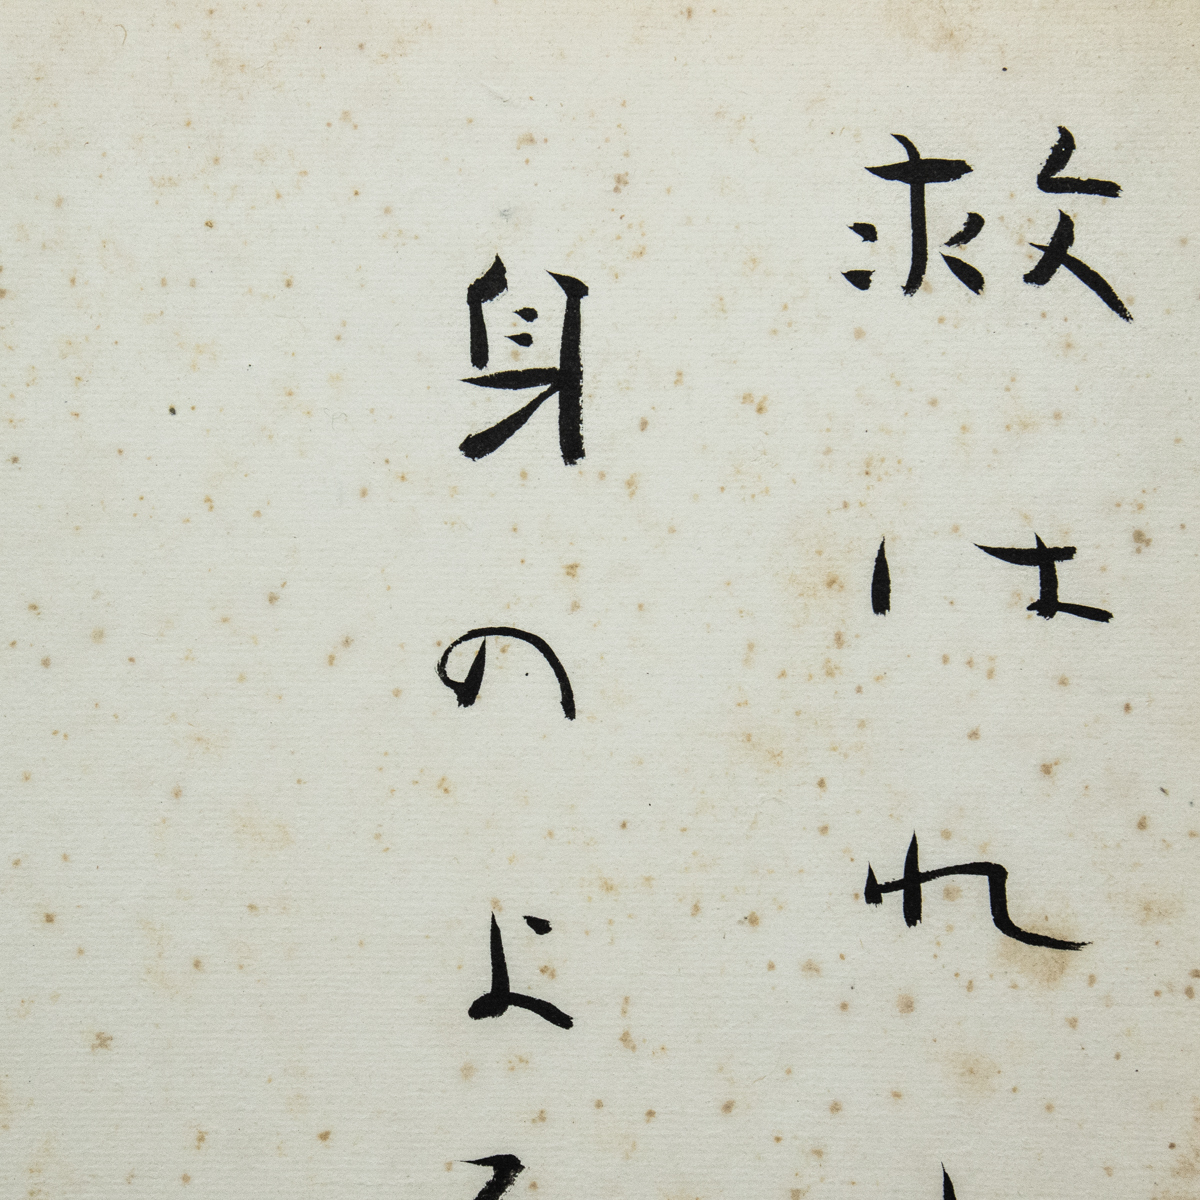 救はれ
身のよ